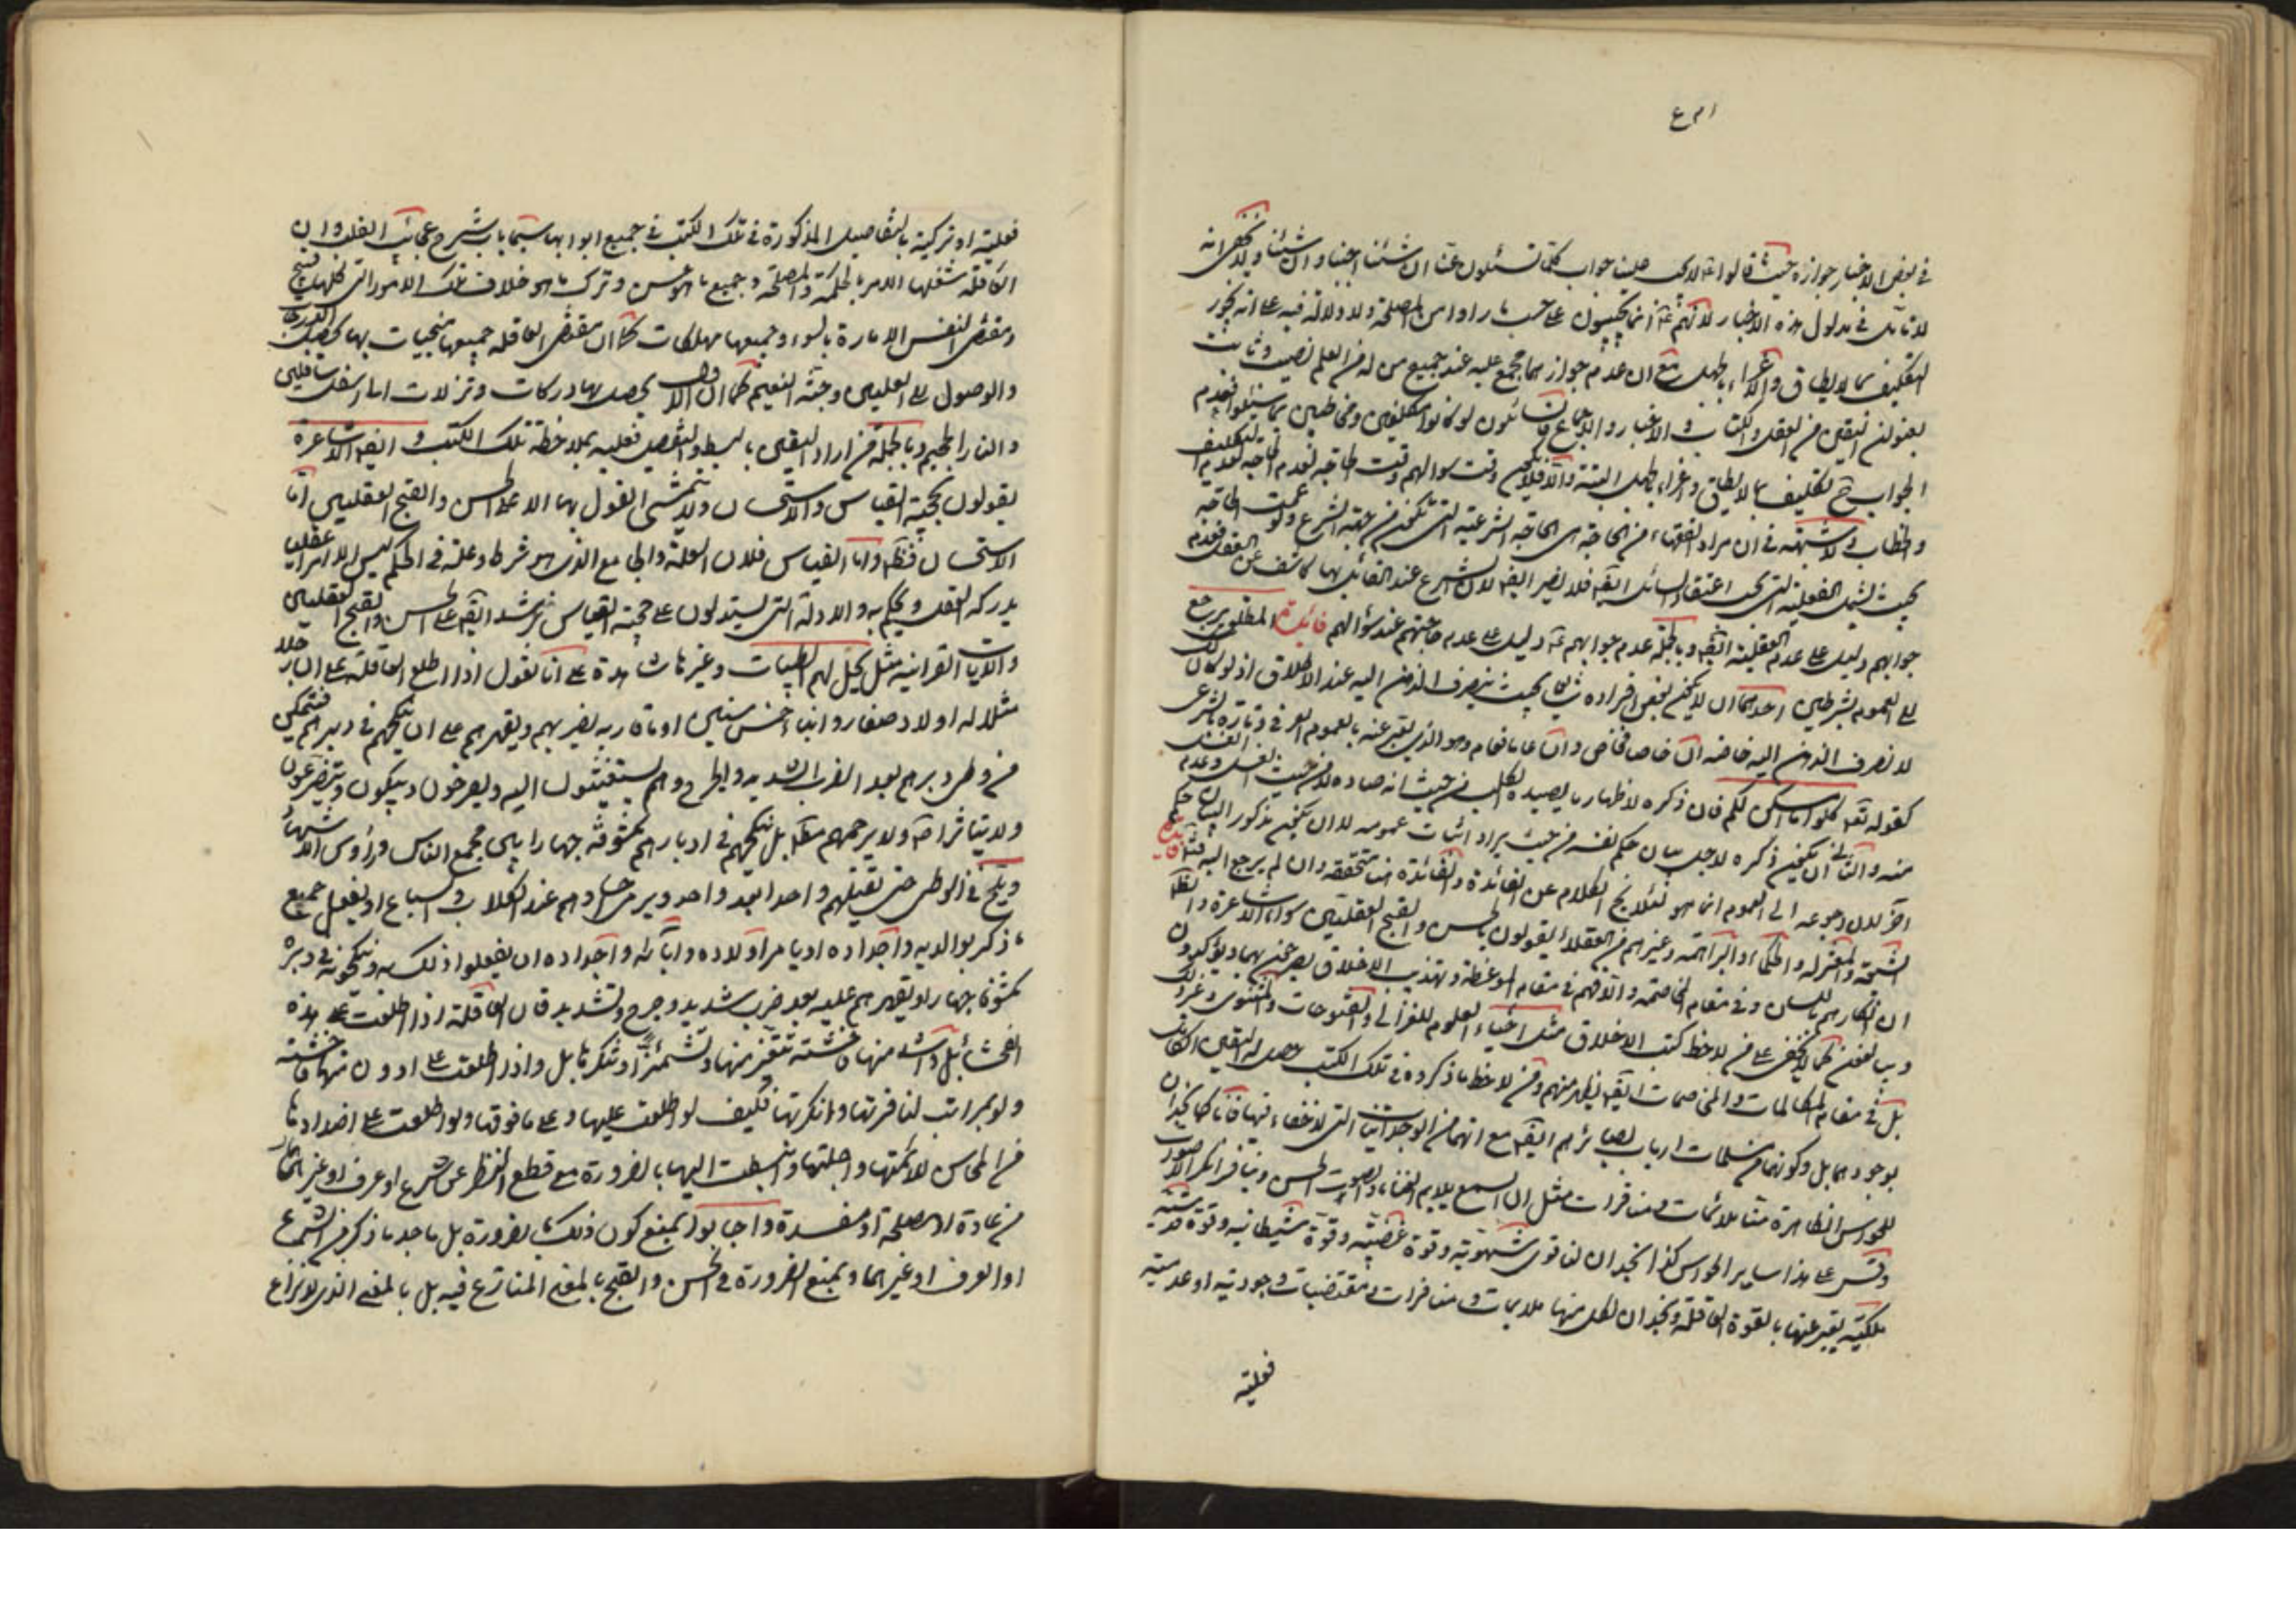 في بعض الاخبار جوازه حيث قالوا لا يجب علينا جواب كلما تسئلون عنا ان شئنا اجبنا وان شئنا
لا تأمل في مدلول هذه الاخبار لانهم انما يجيبون على حسب ما راوا من المصلحة ولا دلالة فيه على انه يجوز
التكليف بما لا يطاق والاغراء بالجهل مع ان عدم جوازهما مجمع عليه عند جميع من له من العلم نصيب وثابت
اليقين من العقل والكتاب والاخبار والاجماع لو كانوا مكلفين ومخاطبين بما سئلوا فعدم
الجواب ح تكليف بما لا يطاق واغراء بالجهل البتة والا فلا يكن وقت سؤالهم وقت الحاجة لعدم الحاجة لعدم التكليف
والخطاب لا شبهة في ان مراد الفقهاء من الحاجة هي الحاجة الشرعية التي تكون من جهة الشرع ولو عممت الحاجة
بحيث تشمل العقلية التي يجب اعتقاد السائل ايضا فلا يضر ايضا لان الشرع عند القائل بها كاشف عن العقل فعدم
جوابهم دليل على عدم العقلية ايضا وبالجملة عدم جوابهم دليل على عدم حاجتهم عند سؤالهم فائدة المطلق يرجع
الى العموم بشرطين احدهما ان لا يكون بعض افراده شايعا بحيث ينصرف الذهن اليه عند الاطلاق اذ لو كان كك
لانصرف الذهن اليه خاصة ان خاصا فخاص وان عاما فعام وهو الذي يعبر عنه بالعموم العرفي وتارة بالشرعي
كقوله تعه كلوا مما امسكن عليكم فان ذكره لاظهار ما يصيده الكلب من حيث انه صاده لا من حيث الغسل وعدم الغسل
منه والثاني ان يكون ذكره لاجل بيان حكم نفسه من حيث يراد اثبات عمومه لا ان يكون مذكورا لبيان حكم
آخر لان رجوعه الى العموم انما هو لئلا يخرج الكلام عن الفائدة والفائدة هنا متحققة وان لم يرجع اليه
الشيعة والمعتزلة والحكماء والبراهمة وغيرهم من العقلاء يقولون بالحسن والقبح العقليين سوى الاشاعرة والظاهر
ان انكارهم باللسان وفي مقام المخاصمة والا فهم في مقام الموعظة وتهذيب الاخلاق يصرحون بهما ويؤكدون
ويبالغون كما لا يخفى على من لاحظ كتب الاخلاق مثل احياء العلوم للغزالي والفتوحات والمثنوي وغير ذلك
بل في مقام المكالمات والمخاصمات ايضا يظهر منهم ومن لاحظ ما ذكروه في تلك الكتب حصل له اليقين الكامل
بوجودهما بل وكونهما من مسلمات ارباب بصائرهم ايضا مع انهما من الوجدانيات التي لا خفاء فيها فانا كما نجد ان
للحواس الظاهرة منا ملائمات ومنافرات مثل ان السمع يلايم الغناء والصوت الحسن وينافر انكر الاصوات
وقس على هذا ساير الحواس كذا نجد ان لنا قوى شهوية وقوة غضبية وقوة شيطانية وقوة قدسية
ملكية يعبر عنها بالقوة العاقلة ونجد ان لكل منها ملايمات ومنافرات ومقتضيات وجودية او عدمية
فعلية
فعلية او تركية بالتفاصيل المذكورة في تلك الكتب في جميع ابوابها سيما باب شرح عجائب القلب وان
العاقلة شغلها الامر بالحكمة والمصلحة وجميع ما هو حسن وترك ما هو خلاف تلك الامور التي كلها قبيح
ومقتضى النفس الامارة بالسوء وجميعها مهلكات كما ان مقتضى العاقلة جميعها منجيات بها يحصل
والوصول الى العليين وجنة النعيم كما ان الاول يحصل بها دركات وتنزلات الى اسفل سافلين
والنار الجحيم وبالجملة من اراد اليقين بالبسط والتفصيل فعليه بملاحظة تلك الكتب وايضا الاشاعرة
يقولون بحجية القياس والاستحسان ولا يتمشى القول بهما الا على الحسن والقبح العقليين اما
الاستحسان فظ واما القياس فلان العلة والجامع الذي هو شرط وعلة في الحكم ليس الا امرا عقليا
يدركه العقل ويحكم به والادلة التي يستدلون على حجية القياس ترشد ايضا على الحسن والقبح العقليين
والايات القرآنية مثل يحل لهم الطيبات وغيرها شاهدة على انا نقول اذا اطلع العاقلة على ان رجلا
مثلا له اولاد صغار وابناء خمس سنين او ما قاربه يضربهم ويقهرهم على ان ينكحهم في دبرهم فتمكن
من وطي دبرهم بعد الضرب الشديد والجرح وهم يستغيثون اليه ويصرخون ويبكون ويتضرعون
ولا يتاثر اصلا ولا يرحمهم مطلقا بل ينكحهم في ادبارهم مكشوفة جهارا بين مجمع الناس ورؤس الاشهاد
ويلح في الوطي حتى يقتلهم واحدا بعد واحد ويرمي اجسادهم عند الكلاب والسباع او يفعل جميع
ما ذكر بوالديه واجداده او يامر اولاده وآبائه واجداده ان يفعلوا ذلك به وينكحونه في دبره
مكشوفا جهارا ويقهرهم عليه بعد ضرب شديد وجرح وتشديد فان العاقلة اذا اطلعت على هذه
الفحشاء بل واشد منها فاحشة تتنفر منها وتشمئز او تنكرها بل واذا اطلعت على ادون منها فاحشة
ولو بمراتب لنافرتها وانكرتها فكيف لو اطلعت عليها وعلى ما فوقها ولو اطلعت على اضدادها
من المحاسن للائمتها واجلتها وانبسطت اليها بالضرورة مع قطع النظر عن شرع او عرف او غيرهما
من عادة او مصلحة او مفسدة واجابوا بمنع كون ذلك بالضرورة بل ما ذكر من الشرع
او العرف او غيرهما وبمنع الضرورة في الحسن والقبح بالمعنى المتنازع فيه بل بالمعنى الذي لا نزاع